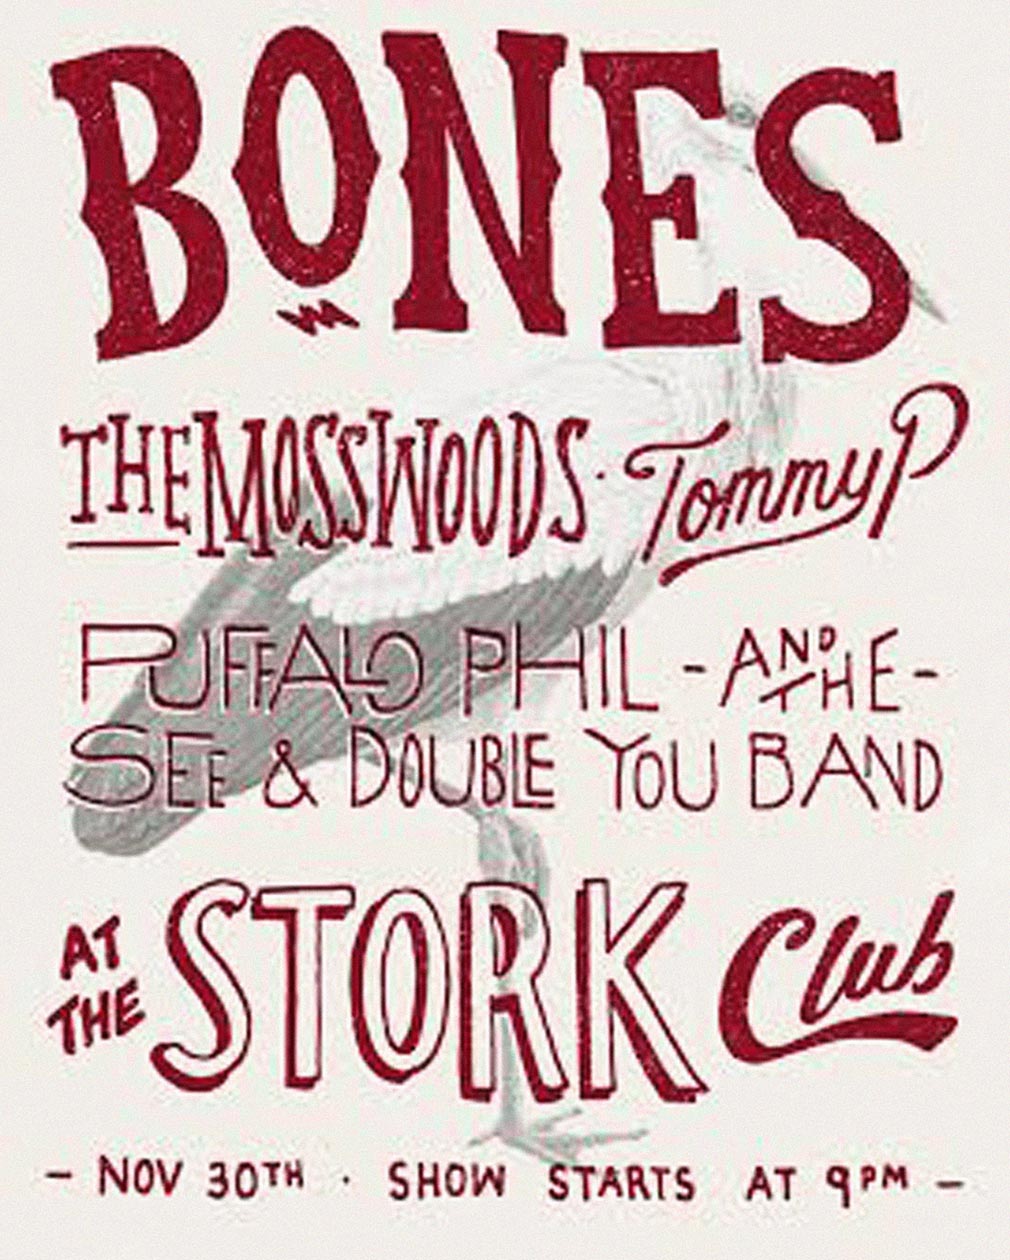 BONES
THE MOSSWOODS · Tommy P
PUFFALO PHIL - AND THE -
SEE & DOUBLE YOU BAND
AT THE STORK Club
- NOV 30TH · SHOW STARTS AT 9PM -